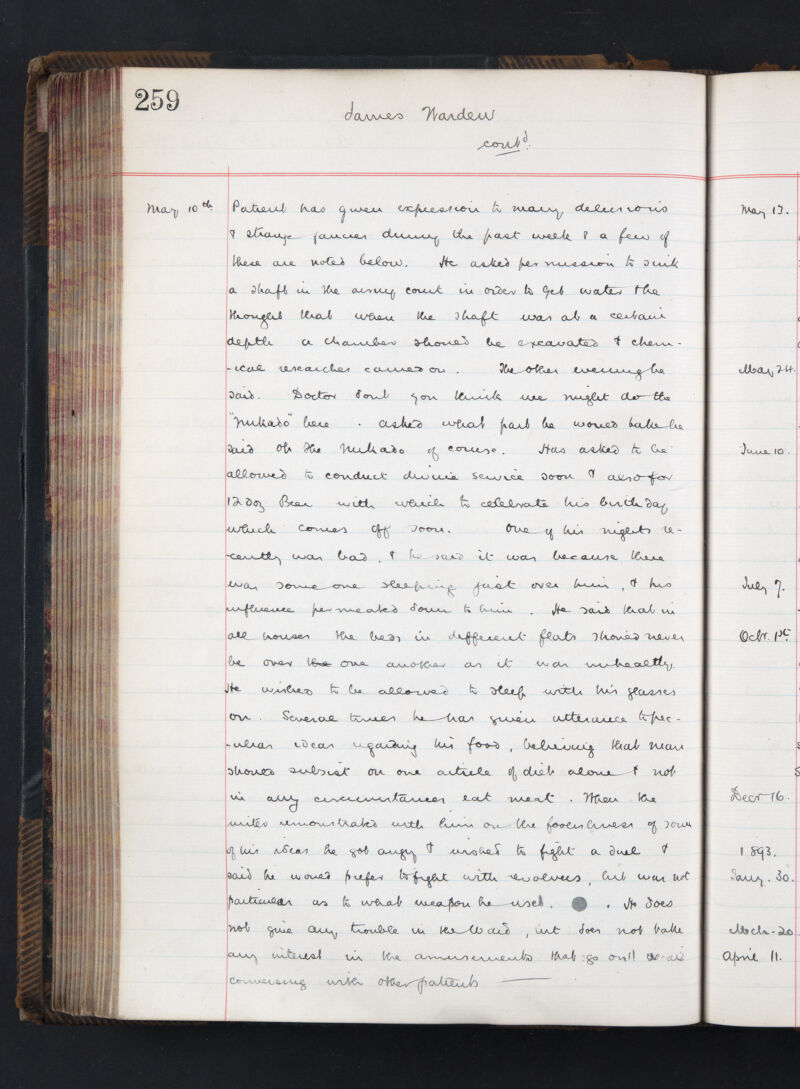 259
James Warden
contd.
May 10th Patient has given expression to many delusions
& strange fancies during the past week & a few of
these are noted below. He asked permission to sink
a shaft in the airing court in order to get water & he
thought that when the shaft was at a certain
depth a chamber should be excavated & chem-
-ical researches carried on. The other evening he
said. Doctor dont you think we might do the
"Mikado" here. asked what part he would take he
said Oh the Mikado of course. Has asked to be
allowed to conduct divine service soon & also for
12 doz Beer with which to celebrate his birthday
which comes off soon. One of his nights re-
-cently was bad, & he said it was because there
was some one sleeping just over him, & his
influence permeated down to him. He said that in
all houses the beds in different flats should never
be over the one another as it was unhealthy.
He wished to be allowed to sleep with his glasses
on. Several times he has given utterance to pec-
-uliar ideas regarding his food, believing that man
should subsist on one article of diet alone & not
in any circumstances eat meat. When the
writer remonstrated with him on the foolishness of some
of his ideas he got angry & wished to fight a duel &
said he would prefer to fight with revolvers, but was not
particular as to what weapon he used. He does
not give any trouble in the Ward, but does not take
any interest in the amusements that go on
conversing with other patients
May 17.
May 24.
June 10.
July 7.
Octr. 1st
Decr 16.
1893.
Jany. 30.
Mch. 20
April 11.